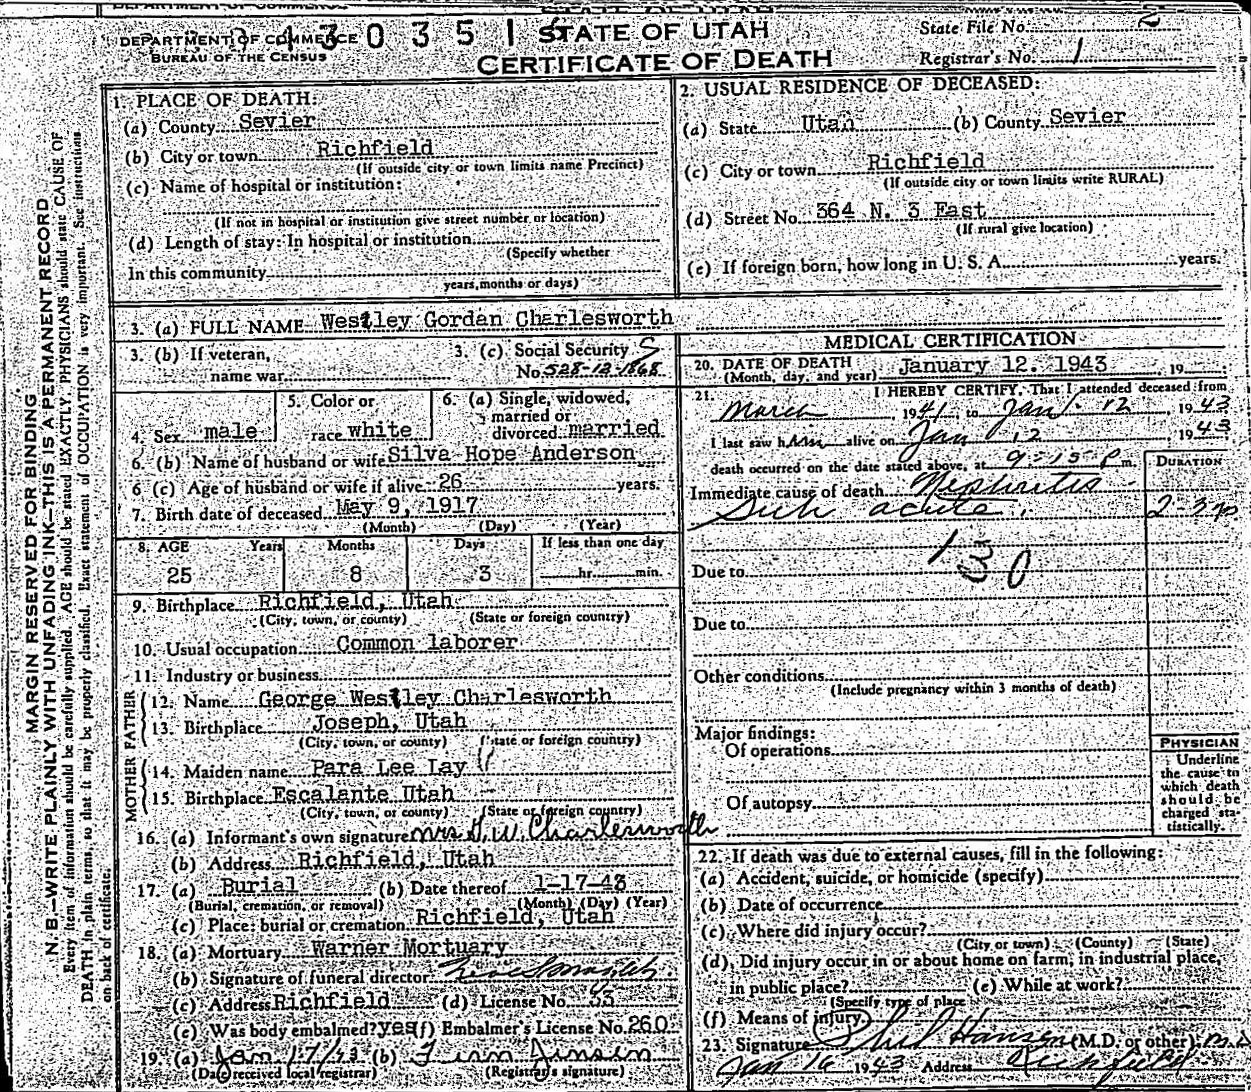 STATE OF UTAH
DEPARTMENT OF COMMERCE
BUREAU OF THE CENSUS
CERTIFICATE OF DEATH
State File No. 2
Registrar's No. 1
MARGIN RESERVED FOR BINDING
N. B.—WRITE PLAINLY WITH UNFADING INK—THIS IS A PERMANENT RECORD
Every item of information should be carefully supplied. AGE should be stated EXACTLY. PHYSICIANS should state CAUSE OF
DEATH in plain terms, so that it may be properly classified. Exact statement of OCCUPATION is very important. See instructions
on back of certificate.
1. PLACE OF DEATH:
(a) County Sevier
(b) City or town Richfield
(If outside city or town limits name Precinct)
(c) Name of hospital or institution:
(If not in hospital or institution give street number or location)
(d) Length of stay: In hospital or institution
(Specify whether
In this community
years, months or days)
2. USUAL RESIDENCE OF DECEASED:
(a) State Utah (b) County Sevier
(c) City or town Richfield
(If outside city or town limits write RURAL)
(d) Street No. 364 N. 3 East
(If rural give location)
(e) If foreign born, how long in U. S. A. years.
3. (a) FULL NAME Westley Gordan Charlesworth
3. (b) If veteran,
name war
3. (c) Social Security
No. 528-12-1868
4. Sex male
5. Color or
race white
6. (a) Single, widowed,
married or
divorced married
6. (b) Name of husband or wife Silva Hope Anderson
6 (c) Age of husband or wife if alive 26 years.
7. Birth date of deceased May 9, 1917
(Month) (Day) (Year)
8. AGE Years Months Days If less than one day
25 8 3 hr. min.
9. Birthplace Richfield, Utah
(City, town, or county) (State or foreign country)
10. Usual occupation Common laborer
11. Industry or business
FATHER
12. Name George Westley Charlesworth
13. Birthplace Joseph, Utah
(City, town, or county) (State or foreign country)
MOTHER
14. Maiden name Para Lee Lay
15. Birthplace Escalante Utah
(City, town, or county) (State or foreign country)
16. (a) Informant's own signature Mrs G. W. Charlesworth
(b) Address Richfield, Utah
17. (a) Burial (b) Date thereof 1-17-43
(Burial, cremation, or removal) (Month) (Day) (Year)
(c) Place: burial or cremation Richfield, Utah
18. (a) Mortuary Warner Mortuary
(b) Signature of funeral director
(c) Address Richfield (d) License No. 35
(e) Was body embalmed? yes (f) Embalmer's License No. 260
19. (a) Jan 17/43 (b)
(Date received local registrar) (Registrar's signature)
MEDICAL CERTIFICATION
20. DATE OF DEATH January 12. 1943 19
(Month, day, and year)
21. I HEREBY CERTIFY, That I attended deceased from
March 1941, to Jan. 12, 1943
I last saw him alive on Jan 12 1943
death occurred on the date stated above, at 9:15 P m.
DURATION
Immediate cause of death Nephritis
Sub acute. 2-3 yr
130
Due to
Due to
Other conditions
(Include pregnancy within 3 months of death)
Major findings:
Of operations
Of autopsy
PHYSICIAN
Underline
the cause to
which death
should be
charged sta-
tistically.
22. If death was due to external causes, fill in the following:
(a) Accident, suicide, or homicide (specify)
(b) Date of occurrence
(c) Where did injury occur?
(City or town) (County) (State)
(d) Did injury occur in or about home on farm, in industrial place,
in public place? (e) While at work?
(Specify type of place
(f) Means of injury
23. Signature Phil Hansen (M.D. or other) M.D
Jan 16 1943 Address Richfield